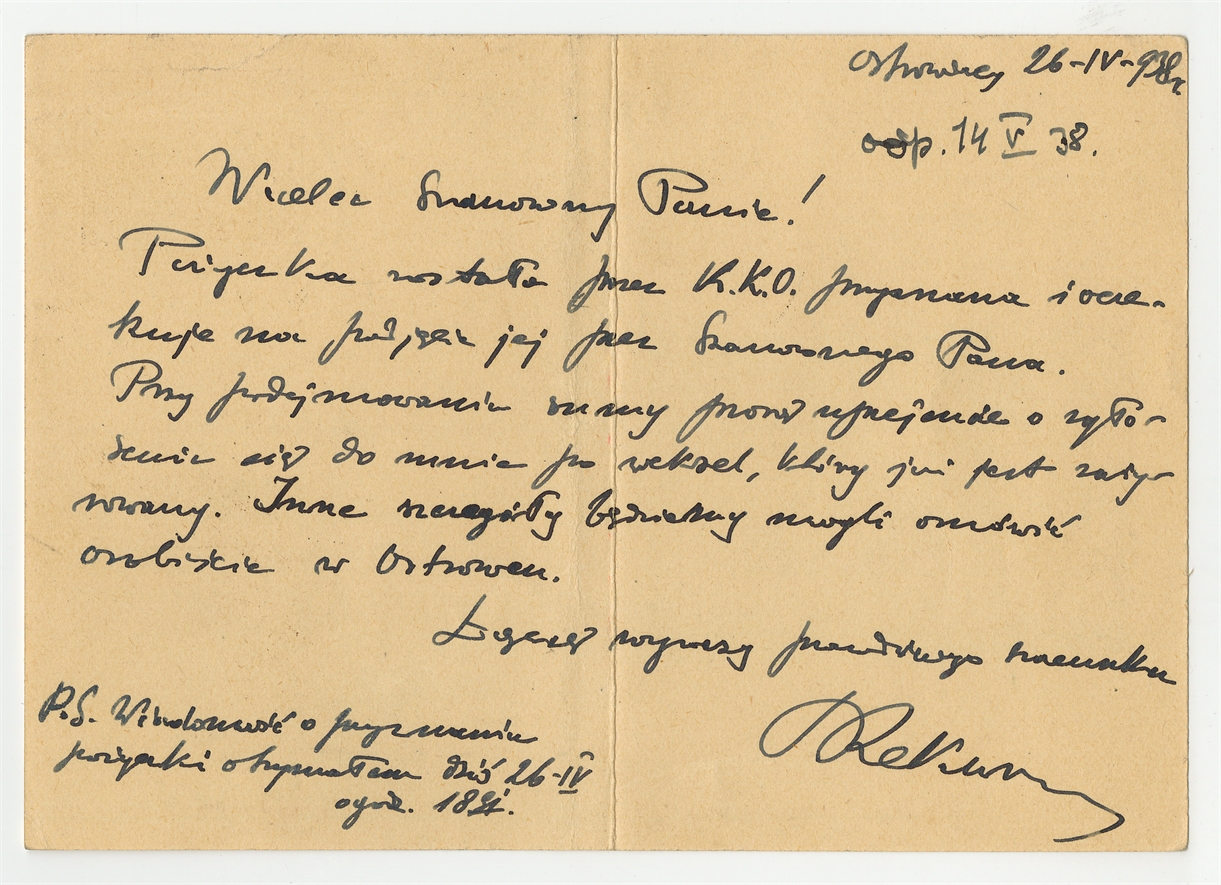 Ostrowiec 26-IV-938r.
odp. 14 V 38.
Wielce Szanowny Panie!
Pożyczka została przez K.K.O. przyznana i ocze-
kuje na podjęcie jej przez Szanownego Pana.
Przy podejmowaniu sumy proszę uprzejmie o zgło-
szenie się do mnie po weksel, który już jest zażyr-
rowany. Inne szczegóły będziemy mogli omówić
osobiście w Ostrowcu.
Łączę wyrazy prawdziwego szacunku
P.S. Wiadomość o przyznaniu
pożyczki otrzymałem dziś 26-IV
o godz. 18